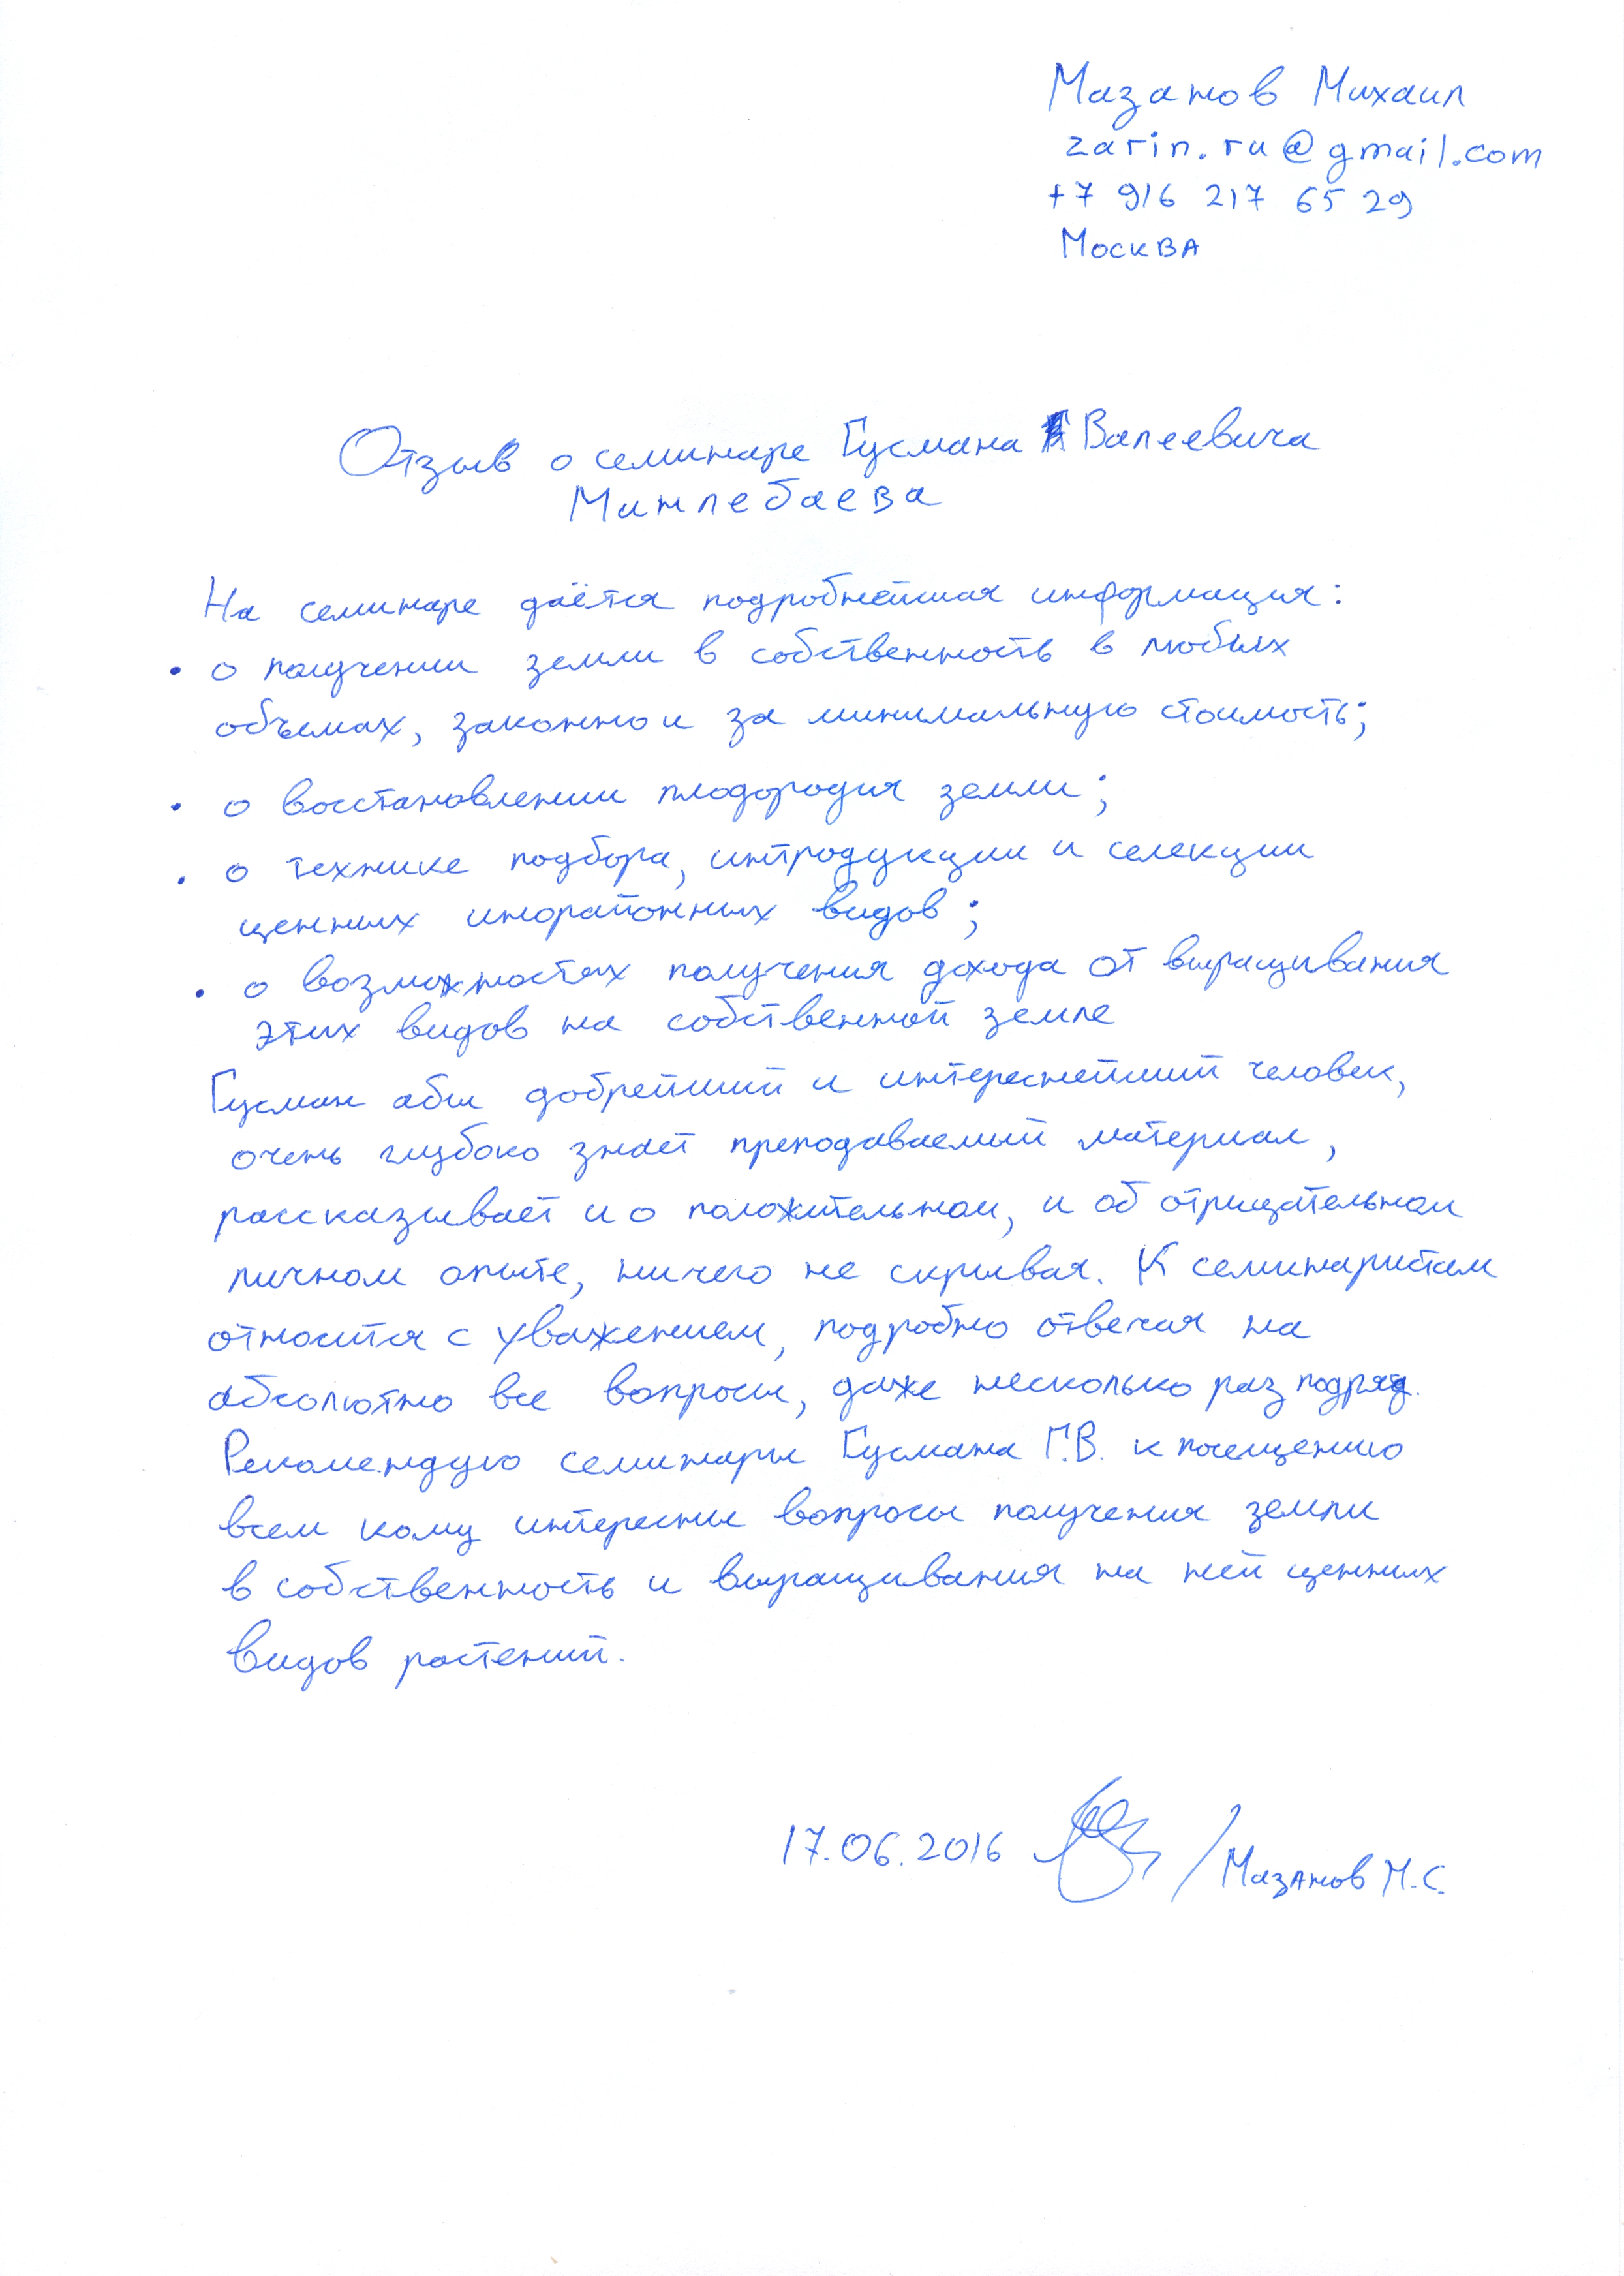 Мазанов Михаил
zarin.ru@gmail.com
+7 916 217 65 29
Москва
Отзыв о семинаре Гусмана Валеевича
Минлебаева
На семинаре даётся подробнейшая информация:
• о получении земли в собственность в любых
объемах, законно и за минимальную стоимость;
• о восстановлении плодородия земли;
• о технике подбора, интродукции и селекции
ценных инорайонных видов;
• о возможностях получения дохода от выращивания
этих видов на собственной земле
Гусман абы добрейший и интереснейший человек,
очень глубоко знает преподаваемый материал,
рассказывает и о положительном, и об отрицательном
личном опыте, ничего не скрывая. К семинаристам
относится с уважением, подробно отвечая на
абсолютно все вопросы, даже несколько раз подряд.
Рекомендую семинары Гусмана Г.В. к посещению
всем кому интересны вопросы получения земли
в собственность и выращивания на ней ценных
видов растений.
17.06.2016 / Мазанов М.С.